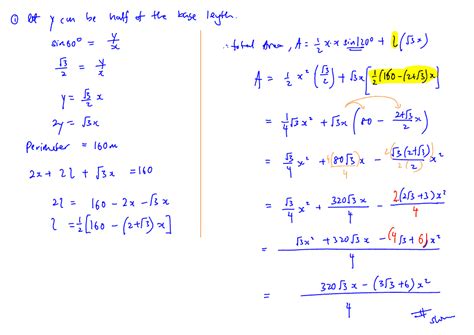 ① let y can be half of the base length.
sin60° = y/x
√3/2 = y/x
y = √3/2 x
2y = √3x
Perimeter = 160m
2x + 2l + √3x = 160
2l = 160 - 2x - √3x
l = 1/2[160 - (2+√3)x]
∴ total area, A = 1/2 x·x sin120° + l(√3x)
A = 1/2 x²(√3/2) + √3x[1/2(160-(2+√3)x]
= 1/4√3x² + √3x(80 - (2+√3)/2 x)
= √3/4 x² + 80√3x - √3(2+√3)/2 x²
= √3/4 x² + 320√3x/4 - 2(2√3+3)x²/4
= (√3x² + 320√3x - (4√3+6)x²)/4
= (320√3x - (3√3+6)x²)/4
# shown